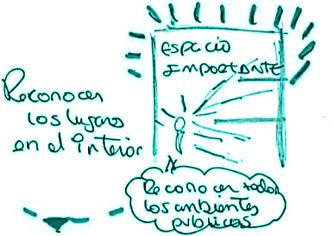 ESPACIO
IMPORTANTE
Reconocer
los lugares
en el interior
Reconocer todos
los ambientes
publicos